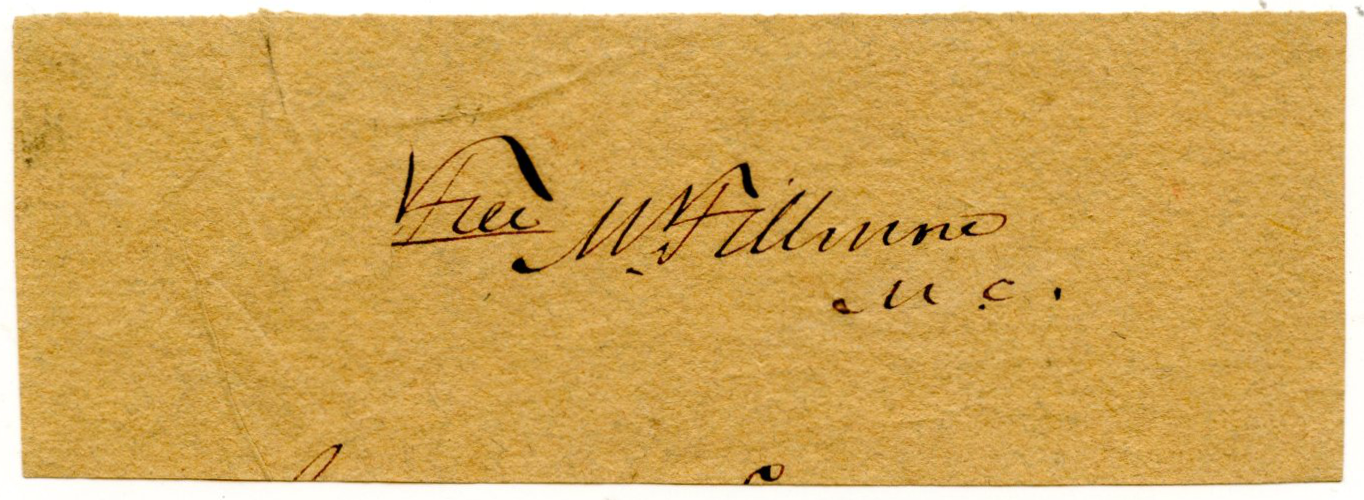 Free M. Fillmore
M. C.